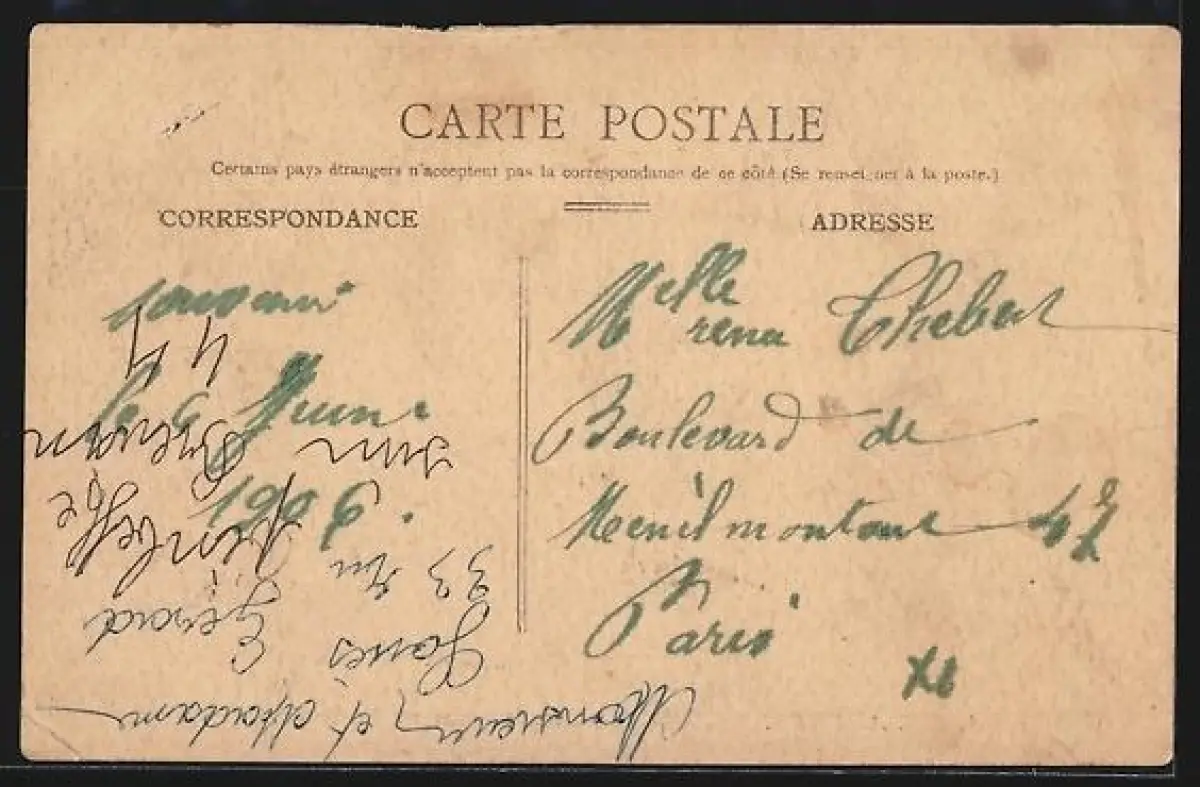 CARTE POSTALE
Certains pays étrangers n'acceptent pas la correspondance de ce côté (Se renseigner à la poste.)
CORRESPONDANCE
ADRESSE
souvenir
le 6 Juin
1906.
Melle
rena Thebert
Boulevard de
Menilmontant 47
Paris
XI
Monsieur et Madame
Gérard
33 rue
44